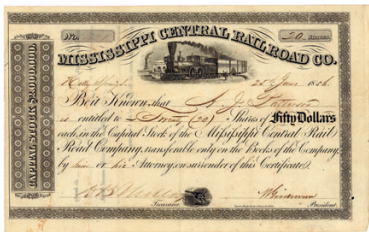 No. 20 Shares
MISSISSIPPI CENTRAL RAILROAD CO.
CAPITAL STOCK
25th June 1856
Be it Known that
is entitled to Twenty (20) Shares of Fifty Dollars
each, in the Capital Stock of the Mississippi Central Rail
Road Company, transferable only on the Books of the Company,
by him or his Attorney, on surrender of this Certificate.
Treasurer President